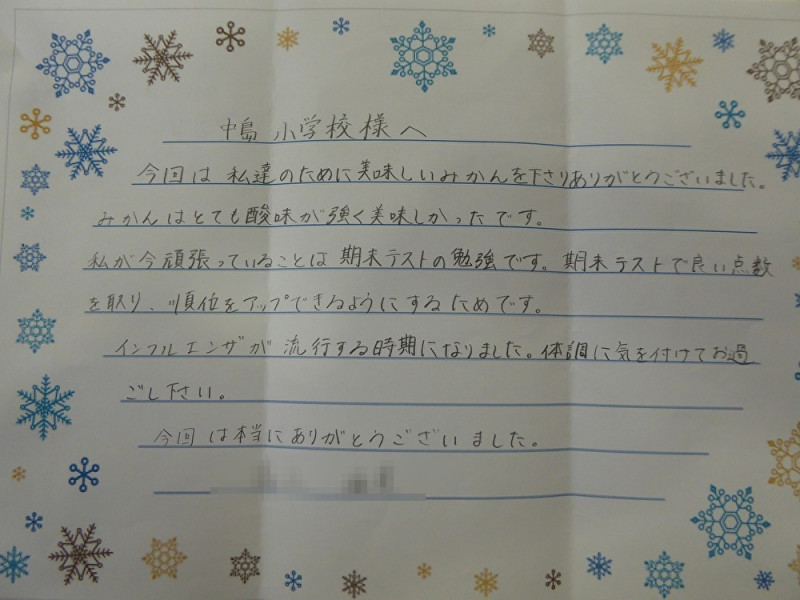 中島小学校様へ
今回は私達のために美味しいみかんを下さりありがとうございました。
みかんはとても酸味が強く美味しかったです。
私が今頑張っていることは期末テストの勉強です。期末テストで良い点数
を取り、順位をアップできるようにするためです。
インフルエンザが流行する時期になりました。体調に気を付けてお過
ごし下さい。
今回は本当にありがとうございました。